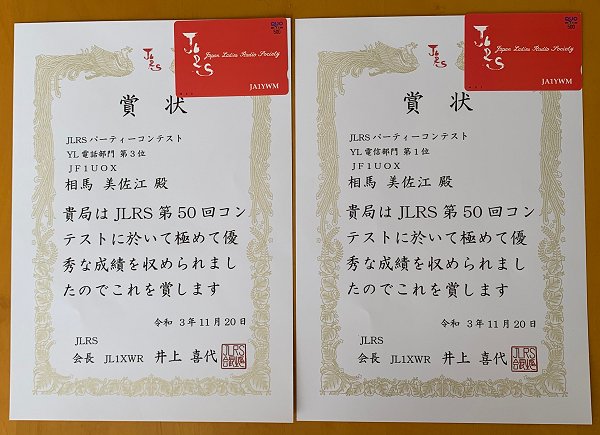 JLRS
Japan Ladies Radio Society
JA1YWM
JLRS
賞状
JLRSパーティーコンテスト
YL電話部門 第3位
JF1UOX
相馬 美佐江 殿
貴局はJLRS第50回コン
テストに於いて極めて優
秀な成績を収められまし
たのでこれを賞します
令和 3年11月20日
JLRS
会長 JL1XWR 井上 喜代
JLRS
JLRS
Japan Ladies Radio Society
JA1YWM
JLRS
賞状
JLRSパーティーコンテスト
YL電信部門 第1位
JF1UOX
相馬 美佐江 殿
貴局はJLRS第50回コン
テストに於いて極めて優
秀な成績を収められまし
たのでこれを賞します
令和 3年11月20日
JLRS
会長 JL1XWR 井上 喜代
JLRS